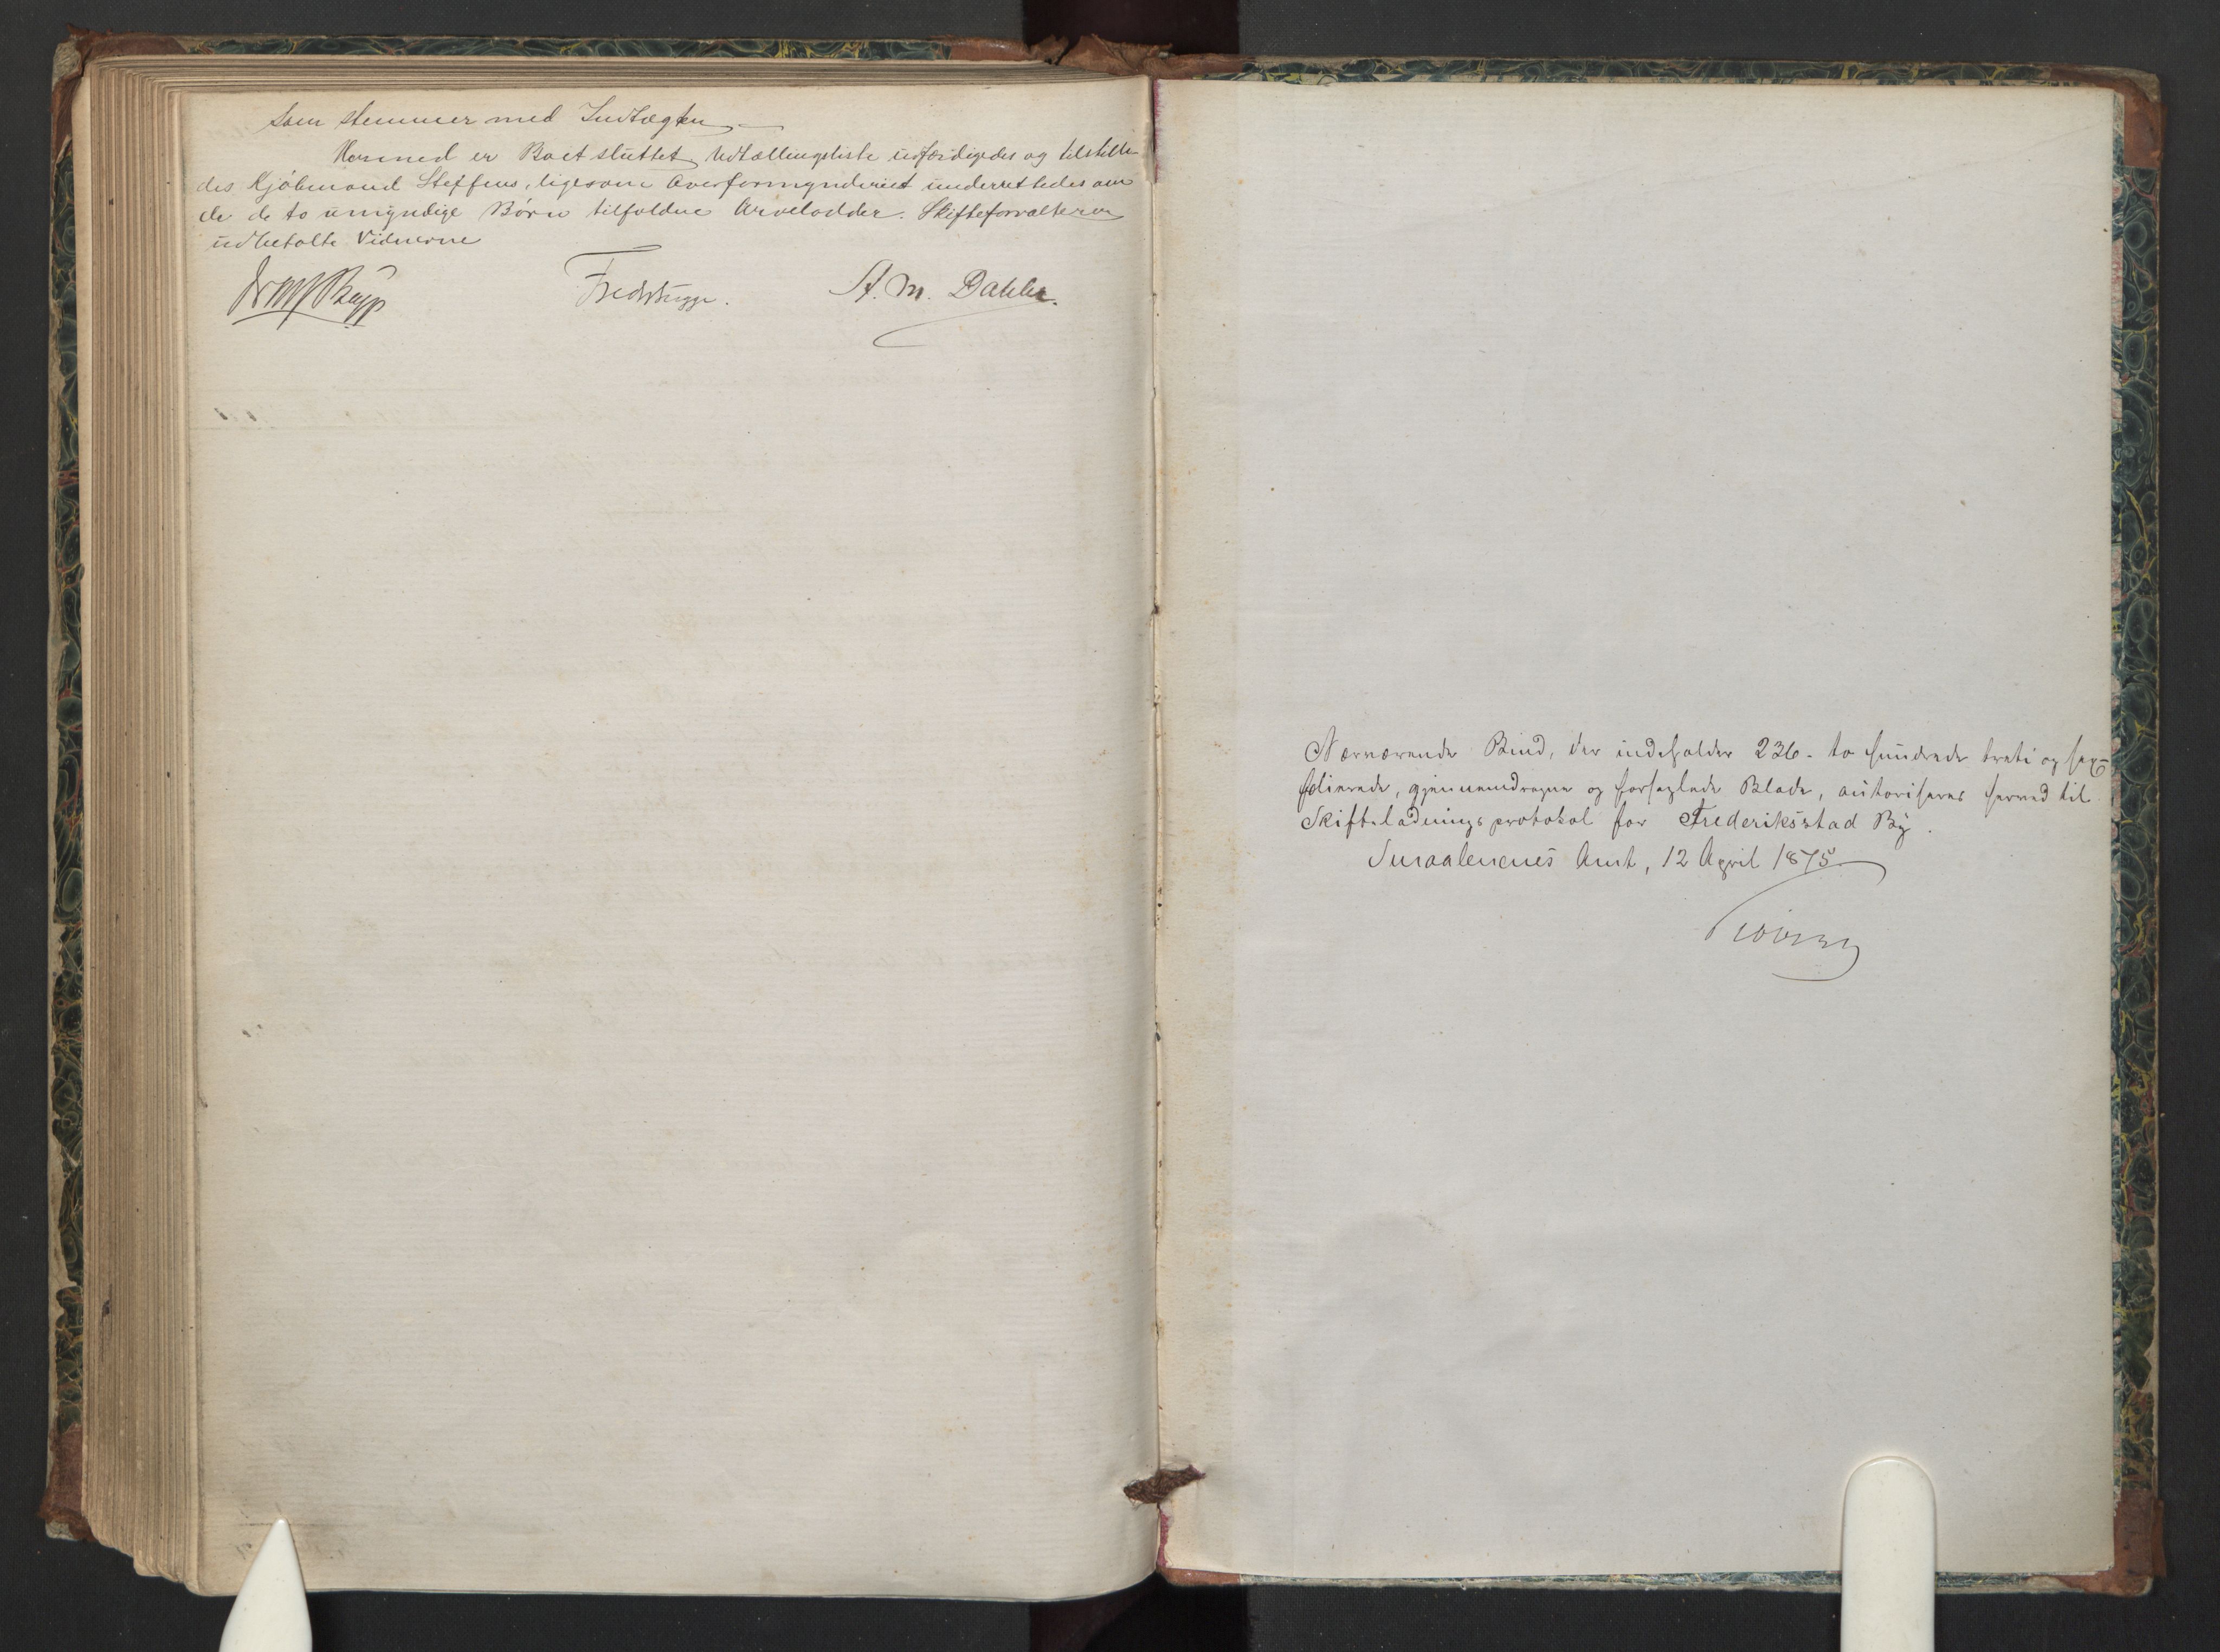 som stemmer med Indtægten.
Hermed er Boet sluttet. Udtællingsliste udfærdigedes og tilstille-
des Kjøbmand Steffens, ligesom Overformynderiet underrettedes om
de de to umyndige Børn tilfaldne Arvelodder. Skifteforvalteren
udbetalte Vidnerne
Fredr Bugge. A. M. Dahler.
Nærværende Bind, der indeholder 236 - to hundrede treti og sex -
folierede, gjennemdragne og forseglede Blade, autoriseres herved til
Skifteladningsprotokol for Frederiksstad By.
Smaalenenes Amt, 12 April 1875